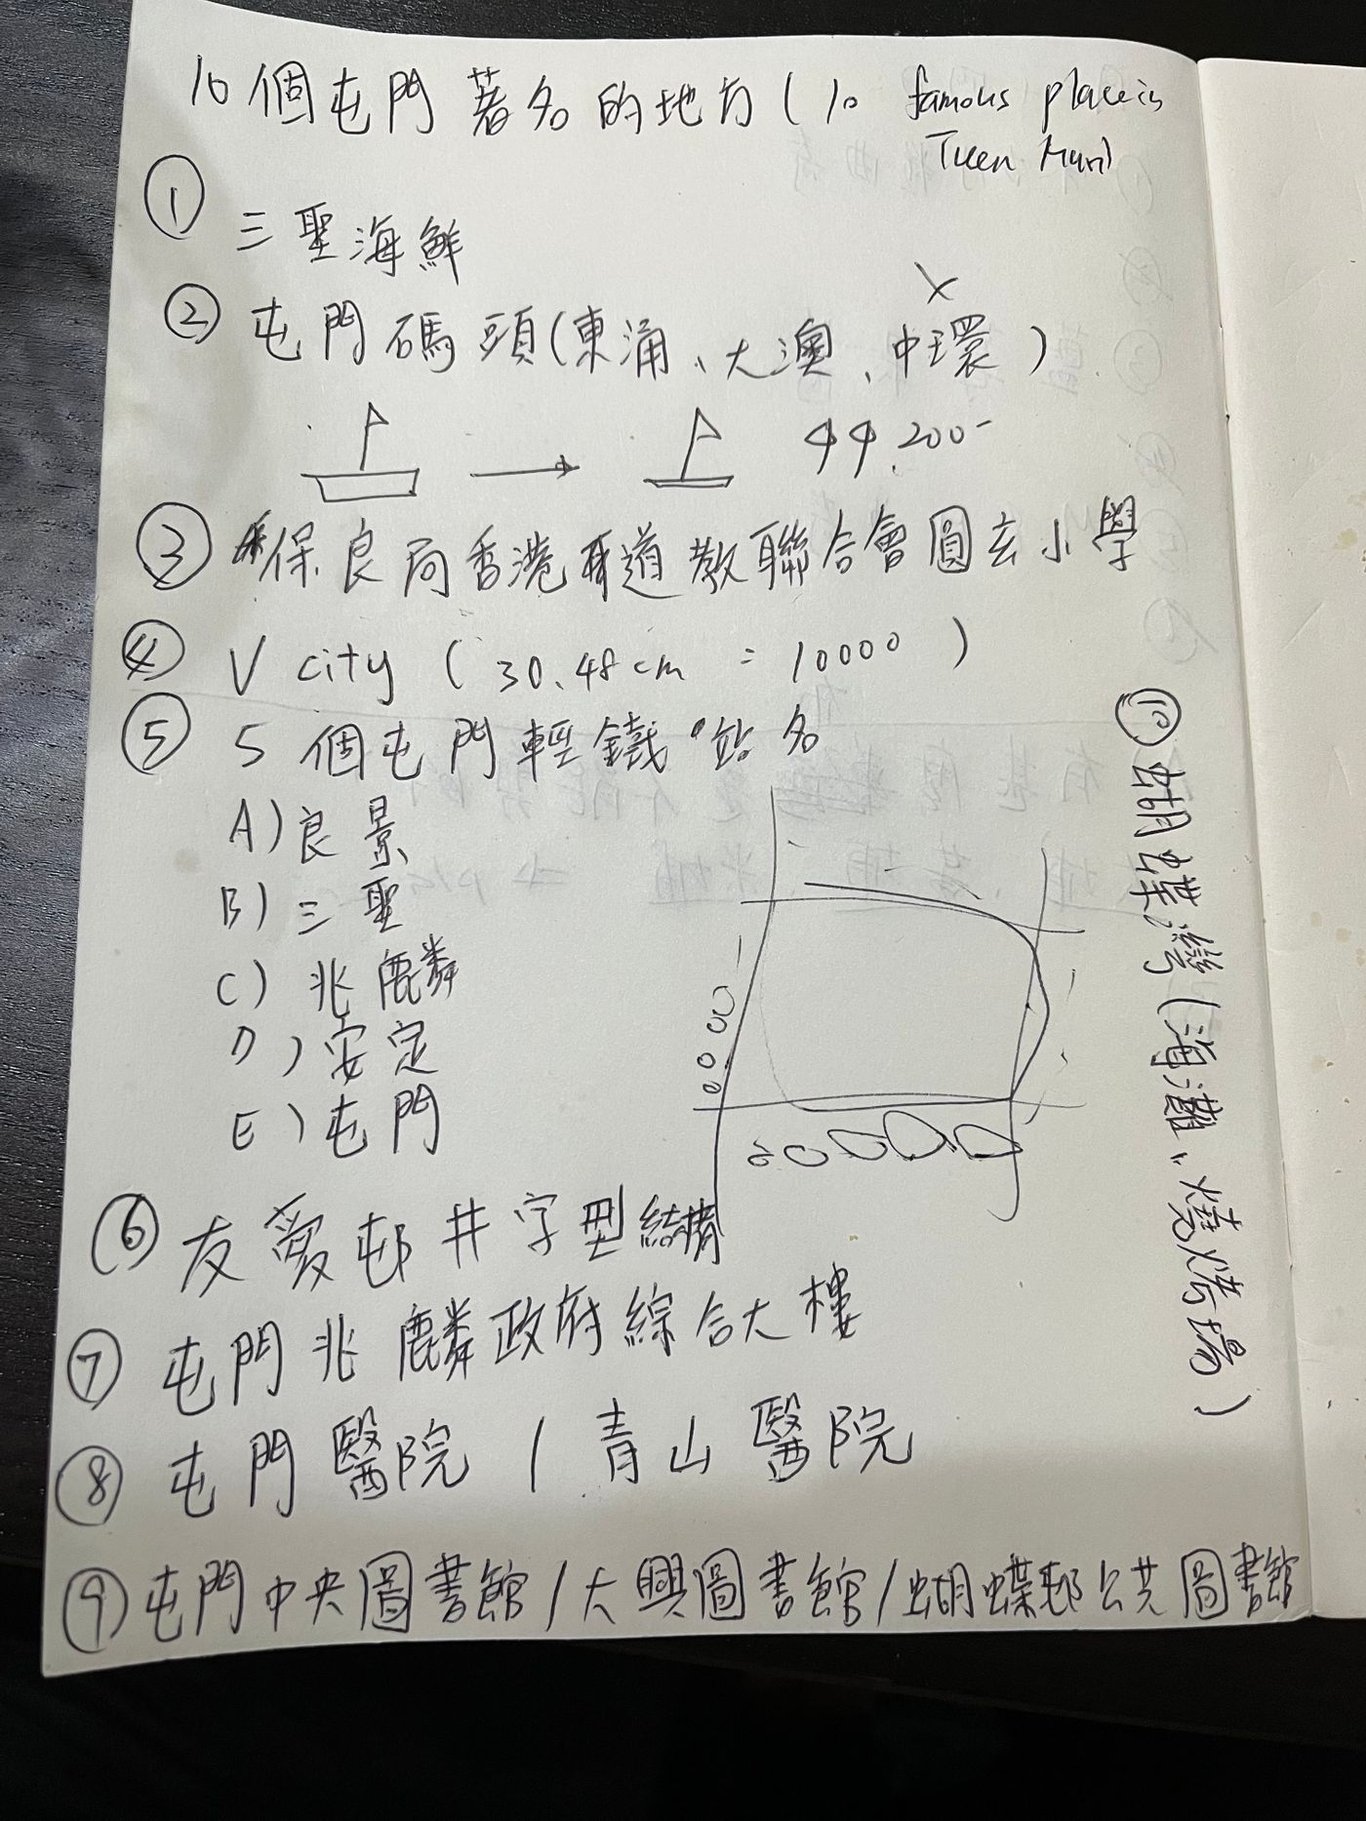 10個屯門著名的地方(10 famous place in
Tuen Mun)
① 三聖海鮮
② 屯門碼頭(東涌、大澳、中環)
X
44.200-
③ 保良局香港道教聯合會圓玄小學
④ V city (30.48cm = 10000)
⑤ 5個屯門輕鐵站名
A) 良景
B) 三聖
C) 兆麟
D) 安定
E) 屯門
⑥ 友愛邨井字型結構
⑦ 屯門兆麟政府綜合大樓
⑧ 屯門醫院 / 青山醫院
⑨ 屯門中央圖書館/大興圖書館/蝴蝶邨公共圖書館
⑩ 蝴蝶灣(海灘、燒烤場)